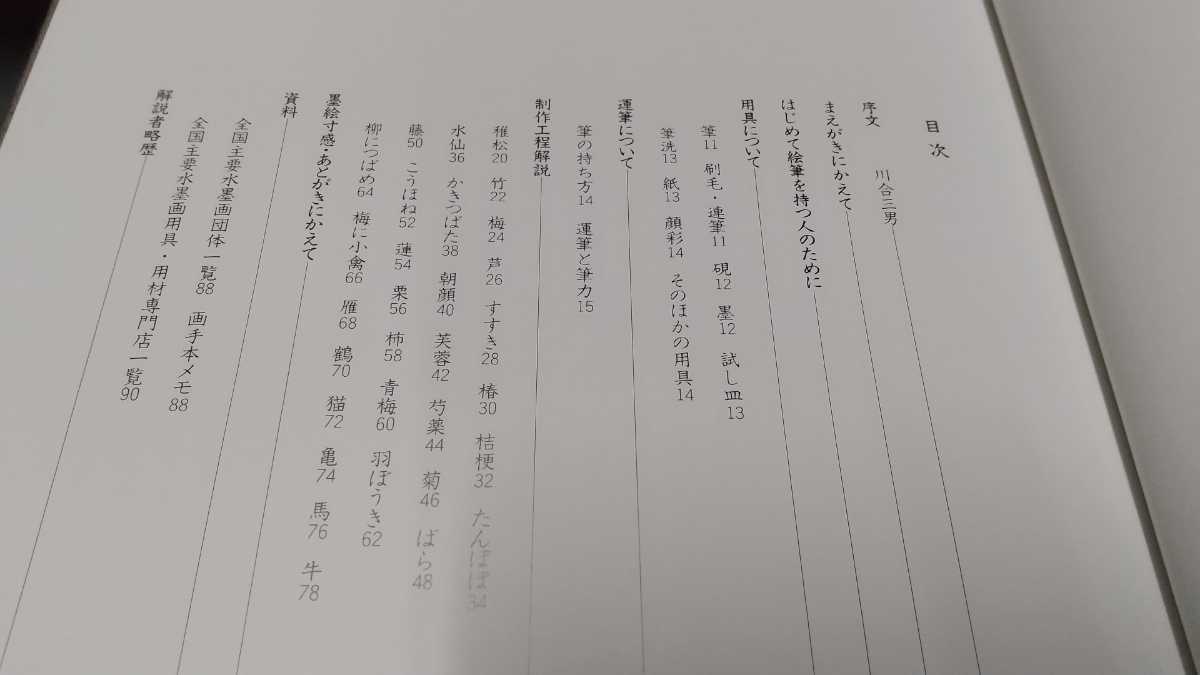 目次
序文　川合三男
まえがきにかえて
はじめて絵筆を持つ人のために
用具について
筆11　刷毛・連筆11　硯12　墨12　試し皿13
筆洗13　紙13　顔彩14　そのほかの用具14
運筆について
筆の持ち方14　運筆と筆力15
制作工程解説
稚松20　竹22　梅24　芦26　すすき28　椿30　桔梗32　たんぽぽ34
水仙36　かきつばた38　朝顔40　芙蓉42　芍薬44　菊46　ばら48
藤50　こうほね52　蓮54　栗56　柿58　青梅60　羽ぼうき62
柳につばめ64　梅に小禽66　雁68　鶴70　猫72　亀74　馬76　牛78
墨絵寸感・あとがきにかえて
資料
全国主要水墨画団体一覧88　画手本メモ88
全国主要水墨画用具・用材専門店一覧90
解説者略歴